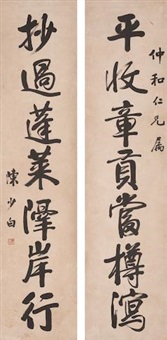 仲和仁兄属
平收章貢當樽瀉
抄過蓬萊澤岸行
陳少白